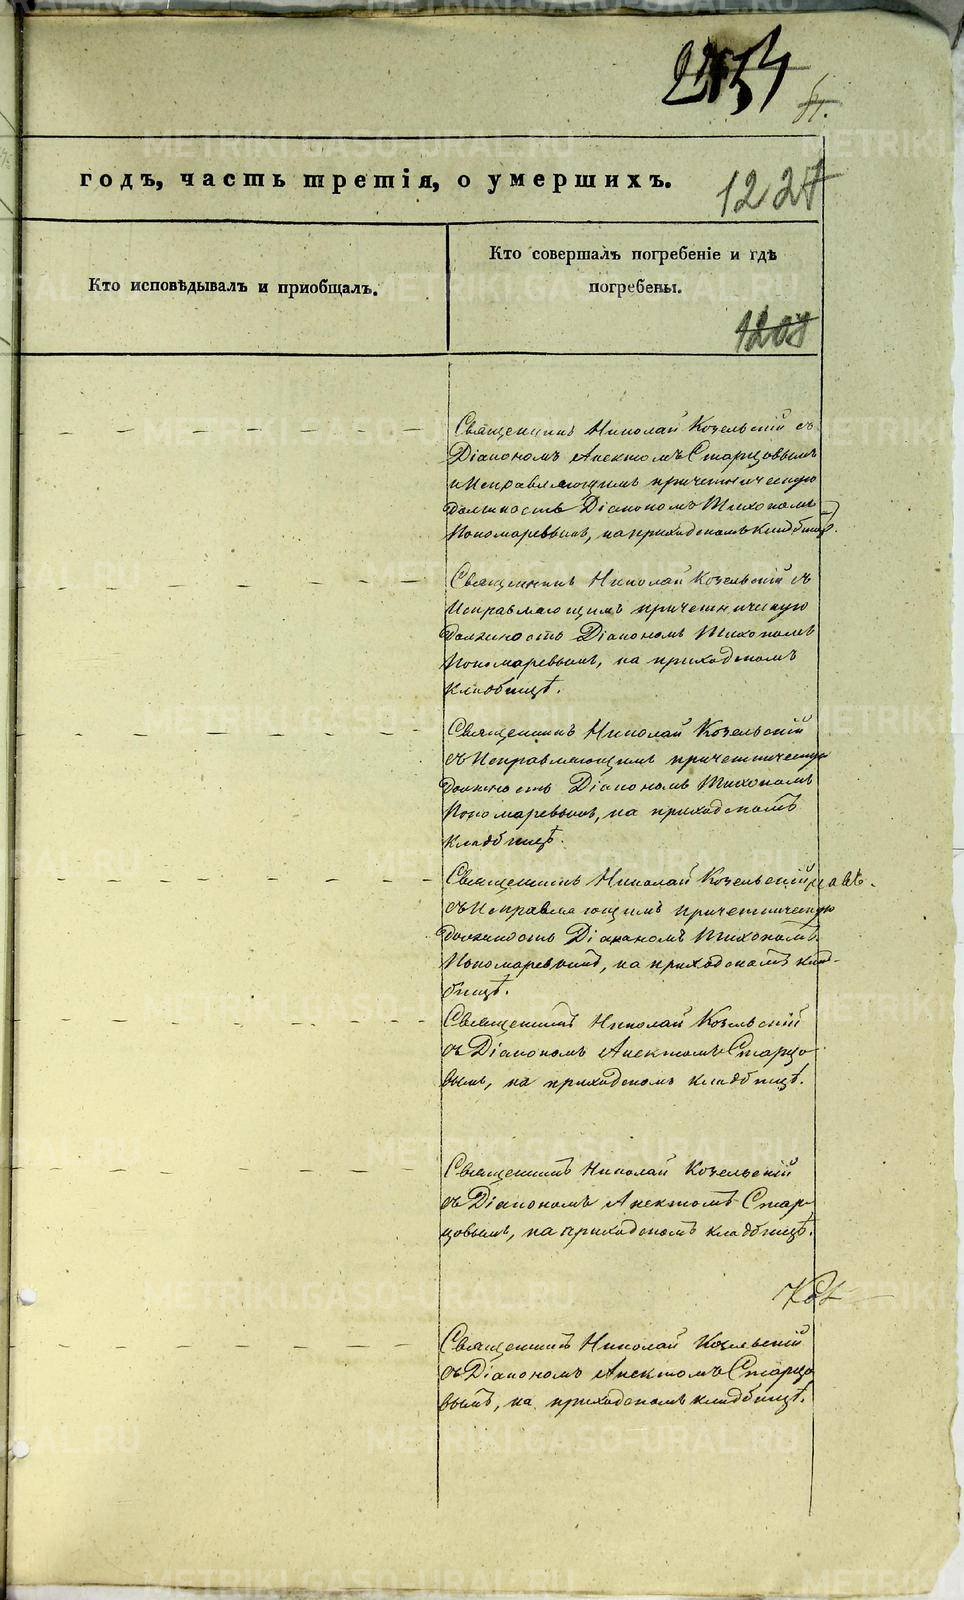 1227
годъ, часть третія, о умершихъ.
Кто исповѣдывалъ и приобщалъ.
Кто совершалъ погребеніе и гдѣ
погребены.
1201
Священникъ Николай Козельскій съ
Діакономъ Алектомъ Старцовымъ
и Исправляющимъ причетническую
должность Діакономъ Тихономъ
Пономаревымъ, на приходскомъ кладбищѣ.
Священникъ Николай Козельскій съ
Исправляющимъ причетническую
должность Діакономъ Тихономъ
Пономаревымъ, на приходскомъ
кладбищѣ.
Священникъ Николай Козельскій
съ Исправляющимъ причетническую
должность Діакономъ Тихономъ
Пономаревымъ, на приходскомъ
кладбищѣ.
Священникъ Николай Козельскій
съ Исправляющимъ причетническую
должность Діакономъ Тихономъ
Пономаревымъ, на приходскомъ клад-
бищѣ.
Священникъ Николай Козельскій
съ Діакономъ Алектомъ Старцо
вымъ, на приходскомъ кладбищѣ.
Священникъ Николай Козельскій
съ Діакономъ Алектомъ Стар
цовымъ, на приходскомъ кладбищѣ.
Священникъ Николай Козельскій
съ Діакономъ Алектомъ Старцо
вымъ, на приходскомъ кладбищѣ.
METRIKI.GASO-URAL.RU